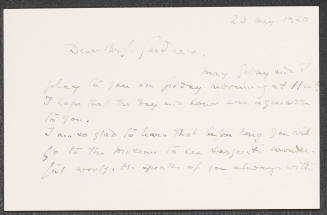 23 May 1920
Dear Mrs. Gardner.
May Gebhard and I
play to you on Friday morning at 11
I hope that the day and hour are agreeable
to you.
I am so glad to learn that before long you will
go to the Museum to see Sargent's wonder-
ful work. He speaks of you always with